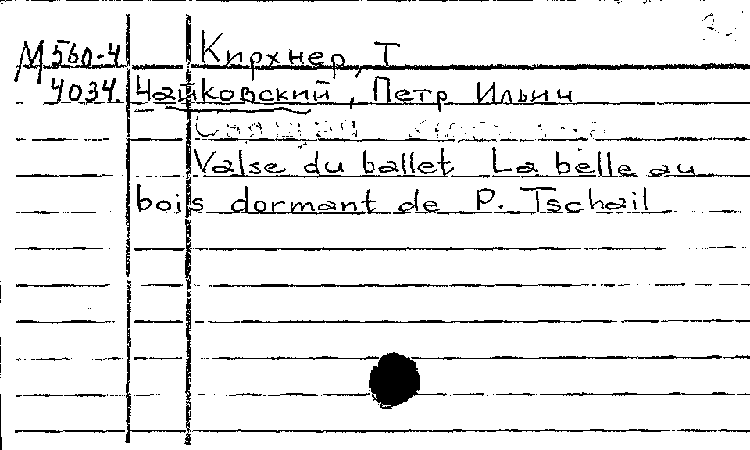 М 560-4 Кирхнер, Т
4034 Чайковский, Петр Ильич
Valse du ballet La belle au
bois dormant de P. Tschail